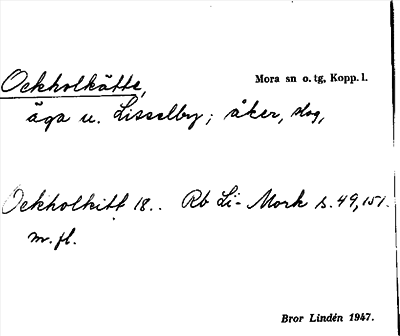 Ockholkätte, Mora sn o. tg, Kopp. l.
äga u. Lisselby; åker, slog,
Oekholkitt 18.. Rb Li- Mork s. 49, 151.
m. fl.
Bror Lindén 1947.